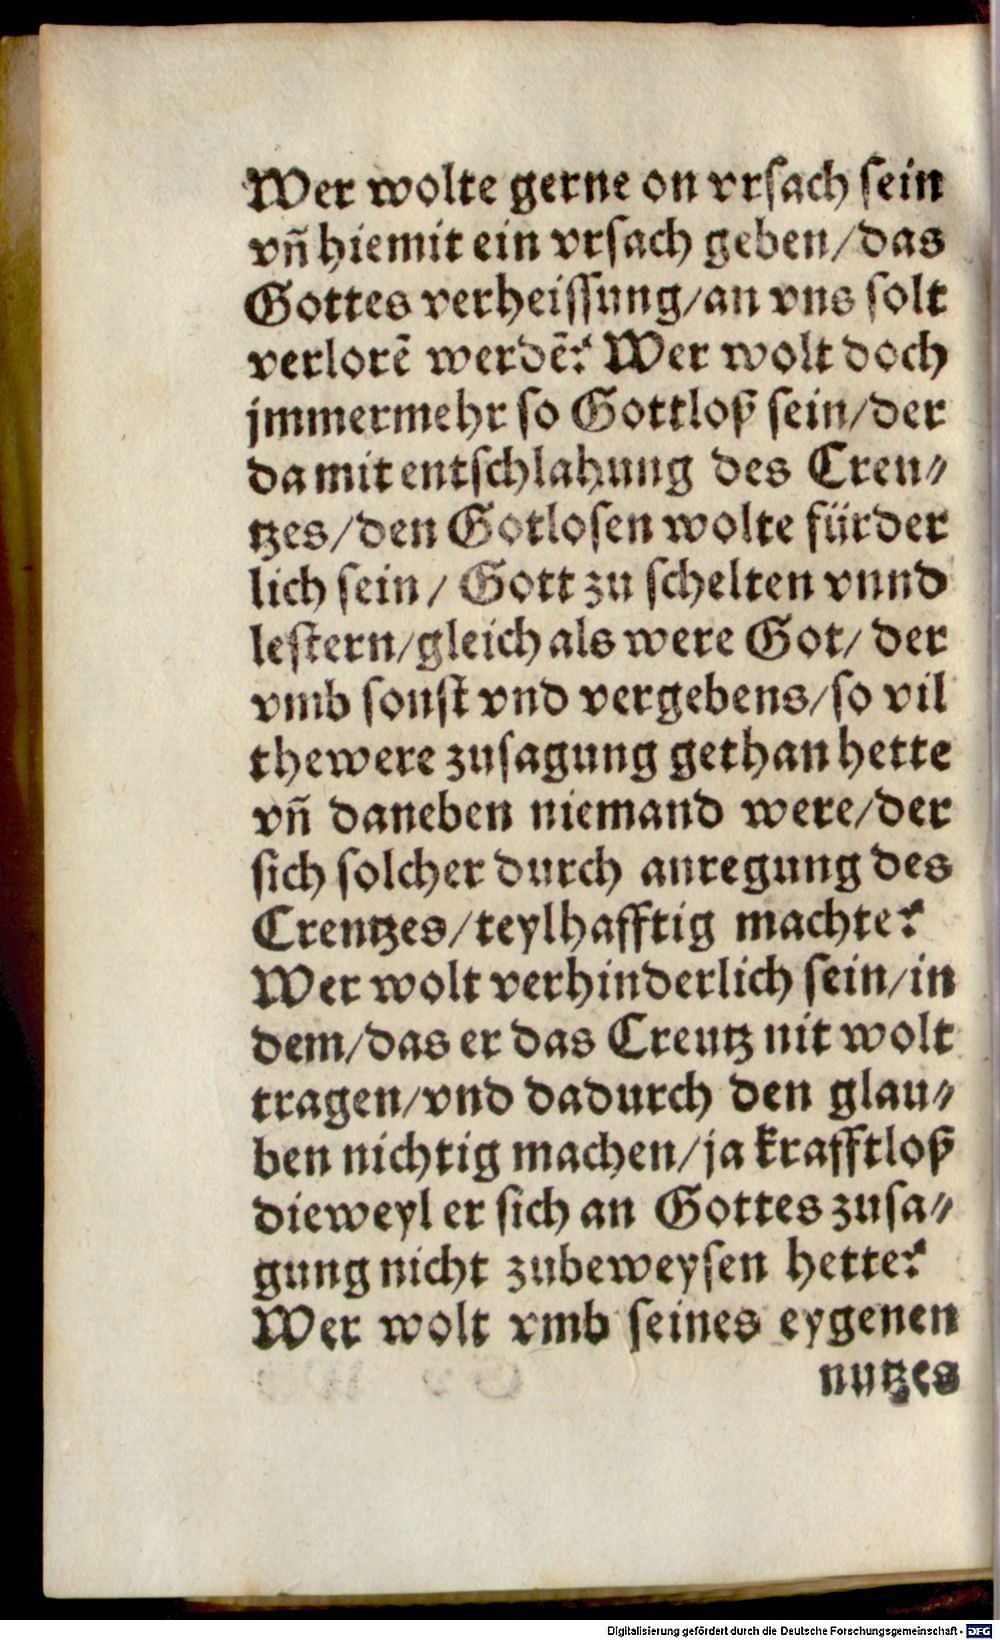 Wer wolte gerne on vrsach sein
vn̄ hiemit ein vrsach geben/das
Gottes verheissung/an vns solt
verlorē werdē? Wer wolt doch
jmmermehr so Gottloß sein/der
da mit entschlahung des Creu⸗
tzes/den Gotlosen wolte fürder
lich sein/ Gott zu schelten vnnd
lestern/gleich als were Got/ der
vmb sonst vnd vergebens/so vil
thewere zusagung gethan hette
vn̄ daneben niemand were/der
sich solcher durch anregung des
Creutzes/teylhafftig machte?
Wer wolt verhinderlich sein/in
dem/das er das Creutz nit wolt
tragen/vnd dadurch den glau⸗
ben nichtig machen/ja krafftloß
dieweyl er sich an Gottes zusa⸗
gung nicht zubeweysen hette?
Wer wolt vmb seines eygenen
nutzes
Digitalisierung gefördert durch die Deutsche Forschungsgemeinschaft - DFG